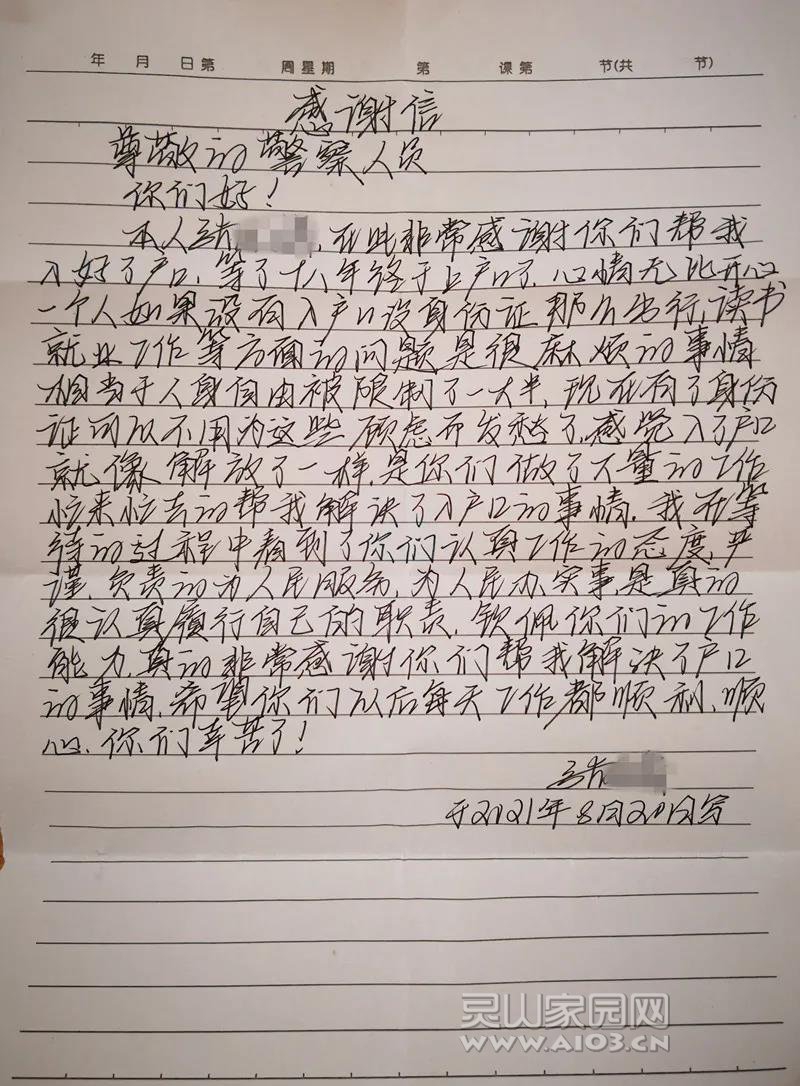 年 月 日第 周星期 第 课第 节(共 节)
感谢信
尊敬的警察人员
你们好!
本人,在此非常感谢你们帮我
入好了户口,等了十八年终于上户口了,心情无比开心
一个人如果没有入户口没身份证那么出行,读书
就业工作等方面的问题是很麻烦的事情
相当于人身自由被限制了一大半,现在有了身份
证可以不用为这些顾虑而发愁了,感觉入了户口
就像解放了一样,是你们做了大量的工作
忙来忙去的帮我解决了入户口的事情,我在等
待的过程中看到了你们认真工作的态度,严
谨,负责的为人民服务,为人民办实事是真的
很认真履行自己的职责,钦佩你们的工作
能力,真的非常感谢你们帮我解决了户口
的事情,希望你们以后每天工作都顺利、顺
心,你们辛苦了!
于2021年8月20日写
灵山家园网
www.a103.cn